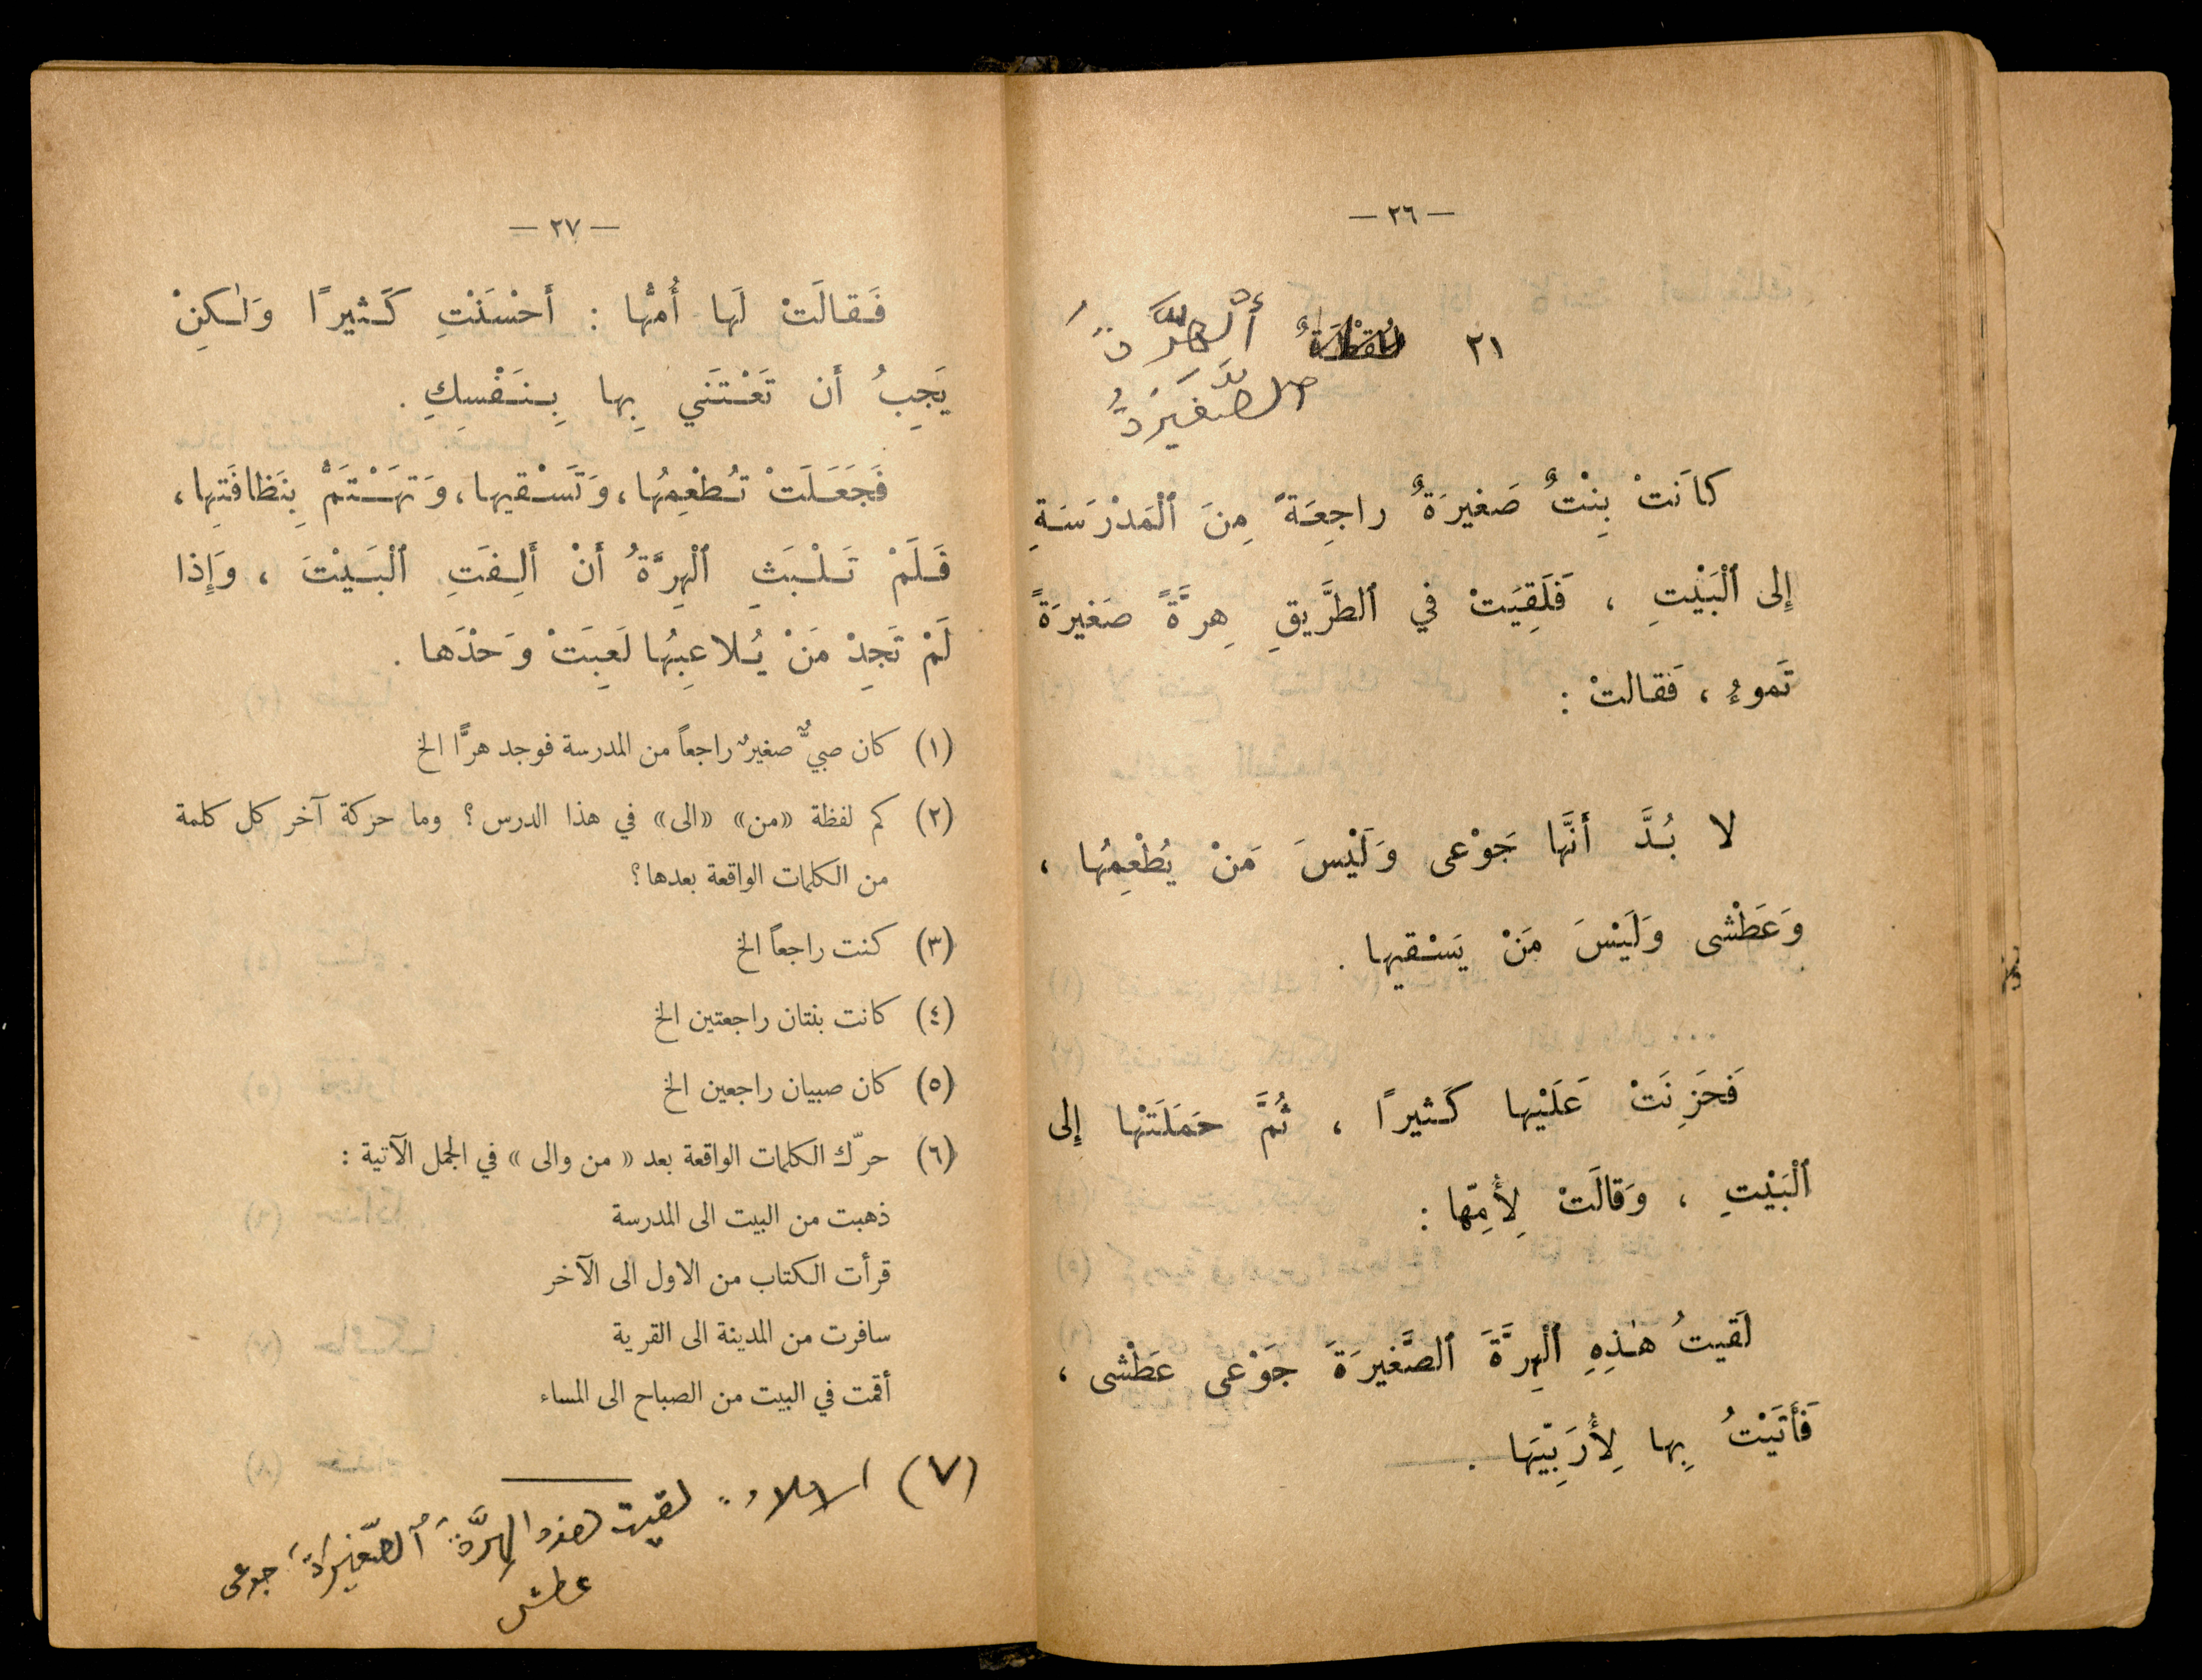 — ٢٦ —
٢١ أَلْهِرَّةُ
الصَّغيَرَةُ
كانَتْ بِنْتٌ صَغيرَةٌ راجِعَةً مِنَ ٱلْمَدْرَسَةِ
إِلى ٱلْبَيْتِ ، فَلَقِيَتْ في ٱلطَّريقِ هِرَّةً صَغيرَةً
تَموءُ ، فَقالتْ :
لا بُدَّ أَنَّها جَوْعى وَلَيْسَ مَنْ يُطْعِمُها ،
وَعَطْشى وَلَيْسَ مَنْ يَسْقيها .
فَحَزِنَتْ عَلَيْها كَثيرًا ، ثُمَّ حَمَلَتْها إِلى
ٱلْبَيْتِ ، وَقالَتْ لِأُمِّها :
لَقيتُ هٰذِهِ ٱلْهِرَّةَ ٱلصَّغيرَةَ جَوْعى عَطْشى ،
فَأَتَيْتُ بِها لِأُرَبِّيَها .
— ٢٧ —
فَقالَتْ لَها أُمُّها : أَحْسَنْتِ كَثيرًا وَلٰكِنْ
يَجِبُ أَن تَعْتَني بِها بِنَفْسِكِ .
فَجَعَلَتْ تُطْعِمُها، وَتَسْقيها، وَتَهْتَمُّ بِنَظافَتِها،
فَلَمْ تَلْبَثِ ٱلْهِرَّةُ أَنْ أَلِفَتِ ٱلْبَيْتَ ، وَإِذا
لَمْ تَجِدْ مَنْ يُلاعِبُها لَعِبَتْ وَحْدَها .
(١) كان صبيٌّ صغيرٌ راجعاً من المدرسة فوجد هرًّا الخ
(٢) كم لفظة «من» «الى» في هذا الدرس؟ وما حركة آخر كل كلمة
من الكلمات الواقعة بعدها؟
(٣) كنت راجعاً الخ
(٤) كانت بنتان راجعتين الخ
(٥) كان صبيان راجعين الخ
(٦) حرّك الكلمات الواقعة بعد « من والى » في الجمل الآتية :
ذهبت من البيت الى المدرسة
قرأت الكتاب من الاول الى الآخر
سافرت من المدينة الى القرية
أقمت في البيت من الصباح الى المساء
(٧) الاملاء : لقيت هذه الهِرَّةَ ٱلصّغيرَةَ جوعى
عطش